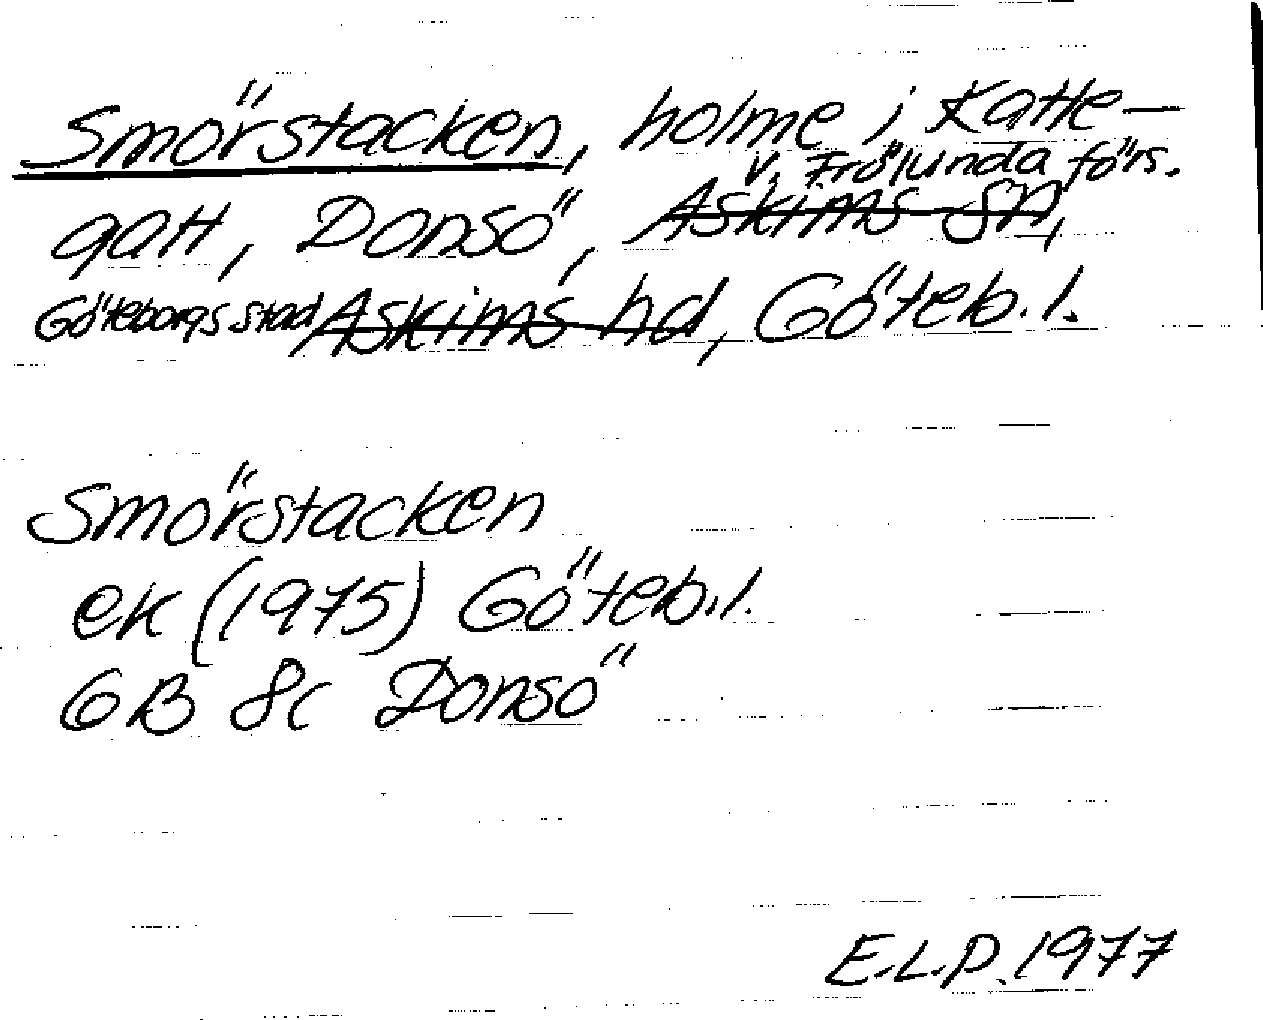 Smörstacken, holme i Katte-
V. Frölunda förs.
gatt, Donsö, Askims sn,
Göteborgs stad Askims hd, Göteb.l.
Smörstacken
ek (1975) Göteb.l.
6B 8c Donsö
E.L.P. 1977